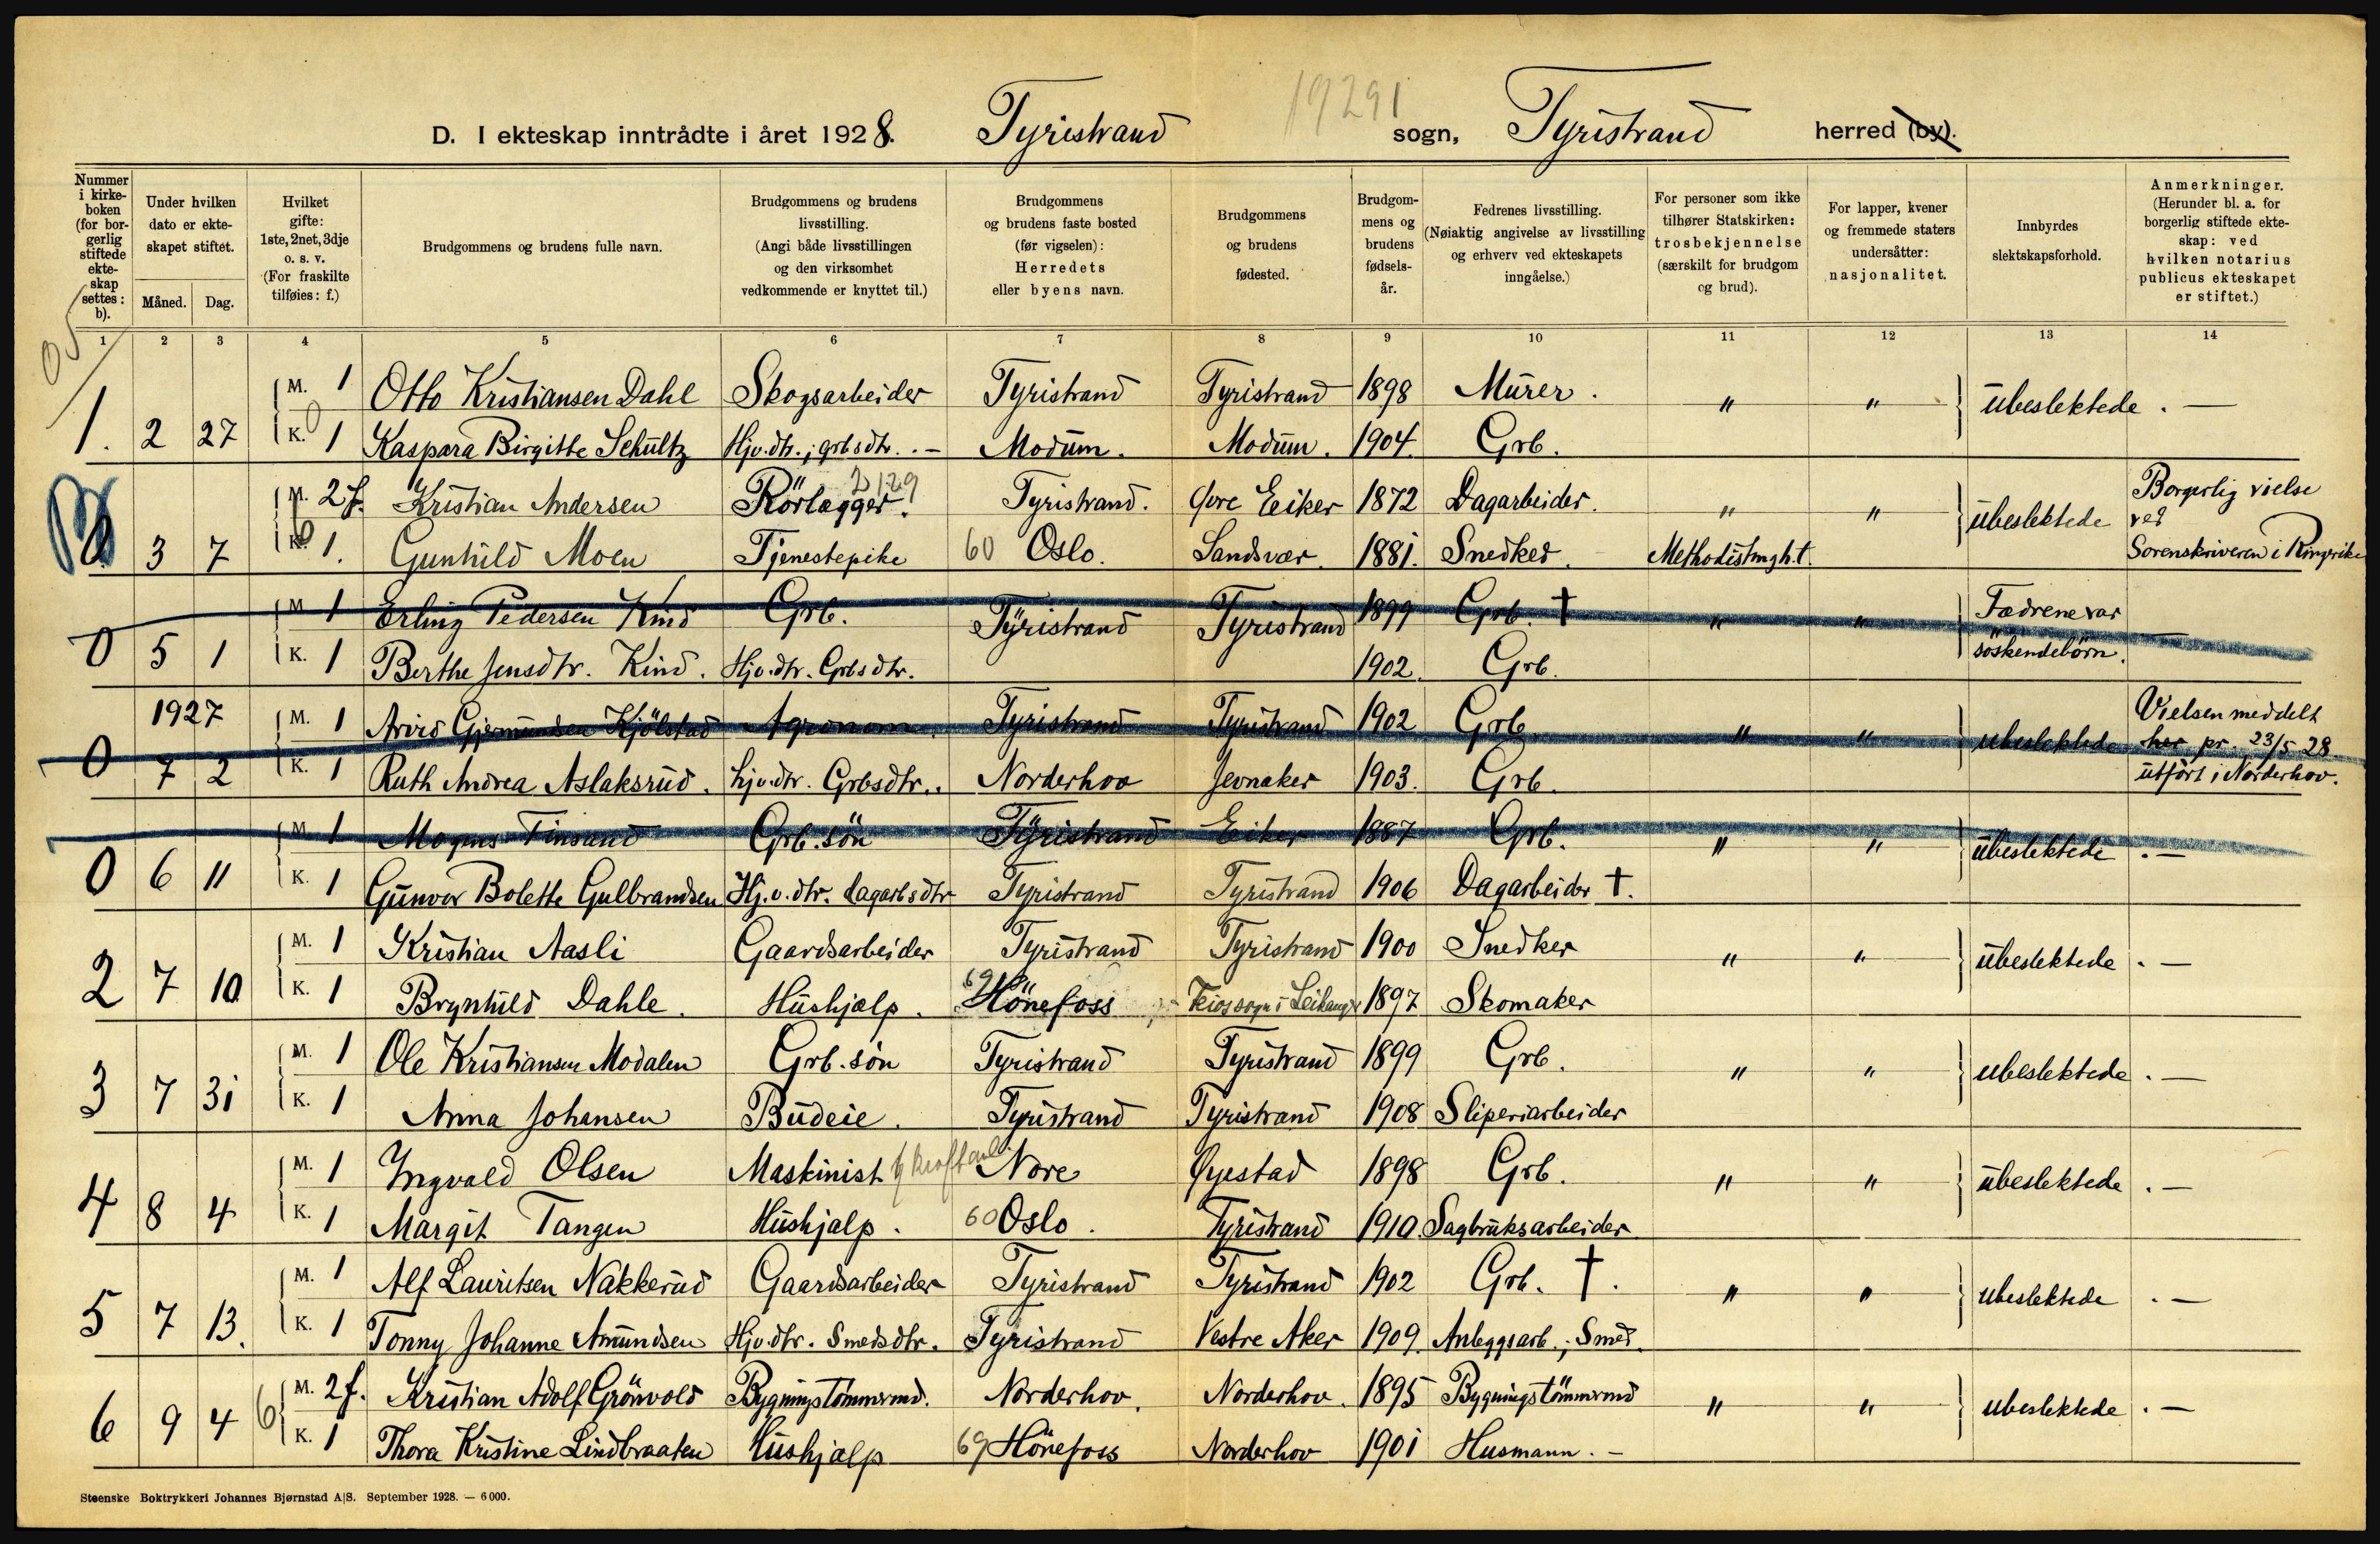 19291
D. I ekteskap inntrådte i året 1928. Tyristrand sogn, Tyristrand herred (by).
Nummer i kirkeboken (for borgerlig stiftede ekteskap settes: b).
Under hvilken dato er ekteskapet stiftet.
Måned. Dag.
Hvilket gifte: 1ste, 2net, 3dje o. s. v. (For fraskilte tilføies: f.)
Brudgommens og brudens fulle navn.
Brudgommens og brudens livsstilling. (Angi både livsstillingen og den virksomhet vedkommende er knyttet til.)
Brudgommens og brudens faste bosted (før vigselen): Herredets eller byens navn.
Brudgommens og brudens fødested.
Brudgommens og brudens fødselsår.
Fedrenes livsstilling. (Nøiaktig angivelse av livsstilling og erhverv ved ekteskapets inngåelse.)
For personer som ikke tilhører Statskirken: trosbekjennelse (særskilt for brudgom og brud).
For lapper, kvener og fremmede staters undersåtter: nasjonalitet.
Innbyrdes slektskapsforhold.
Anmerkninger. (Herunder bl. a. for borgerlig stiftede ekteskap: ved hvilken notarius publicus ekteskapet er stiftet.)
1 2 3 4 5 6 7 8 9 10 11 12 13 14
M. 1 Otto Kristiansen Dahl Skogsarbeider Tyristrand Tyristrand 1898 Murer. " " ubeslektede . —
1. 2 27 K. 1 Kaspara Birgitte Schultz Hjv. dtr.; grbsdtr. . – Modum. Modum. 1904. Grb.
M. 2 f. Kristian Andersen Rörlegger. Tyristrand. Øvre Eiker 1872 Dagarbeider. " " ubeslektede Borgerlig vielse
3 7 K. 1. Gunhild Moen Tjenestepike 60 Oslo. Sandsvær. 1881. Snedker. Methodistmgh.t. ved Sorenskriveren i Ringerike
M. 1 Erling Pedersen Kind Grb. Tyristrand Tyristrand 1899 Grb. † " " Fædrene var
0 5 1 K. 1 Berthe Jensdtr. Kind. Hjv. dtr. Grbsdtr. 1902. Grb. söskendebörn. —
1927 M. 1 Arvid Gjermundsen Kjölstad Agronom. Tyristrand Tyristrand 1902 Grb. " " ubeslektede Vielsen meddelt her pr. 23/5 28
0 7 2 K. 1 Ruth Andrea Aslaksrud. hjv. dtr. Grbsdtr.. Norderhov Jevnaker 1903. Grb. utfört i Norderhov.
M. 1 Mogens Finsand Grb. sön Tyristrand Eiker 1887 Grb. " " ubeslektede . —
0 6 11 K. 1 Gunvor Bolette Gulbrandsen Hj. v. dtr. dagarbsdtr Tyristrand Tyristrand 1906 Dagarbeider †.
M. 1 Kristian Aasli Gaardsarbeider Tyristrand Tyristrand 1900 Snedker " " ubeslektede . —
2 7 10 K. 1 Brynhild Dahle. Hushjælp. 69 Hönefoss Feios sogn i Leikanger 1897 Skomaker
M. 1 Ole Kristiansen Modalen Grb. sön Tyristrand Tyristrand 1899 Grb. " " ubeslektede . —
3 7 31 K. 1 Anna Johansen Budeie. Tyristrand Tyristrand 1908 Sliperiarbeider
M. 1 Ingvald Olsen Maskinist Nore Øyestad 1898 Grb. " " ubeslektede . —
4 8 4 K. 1 Margit Tangen Hushjælp. 60 Oslo. Tyristrand 1910. Sagbruksarbeider
M. 1 Alf Lauritsen Nakkerud Gaardsarbeider Tyristrand Tyristrand 1902 Grb. †. " " ubeslektede . —
5 7 13. K. 1 Tonny Johanne Amundsen Hjv. dtr. Smedsdtr. Tyristrand Vestre Aker 1909. Anleggsarb.; Smed.
M. 2 f. Kristian Adolf Grönvold Bygningstömmermd. Norderhov. Norderhov. 1895 Bygningstömmermd " " ubeslektede . —
6 9 4 6 K. 1 Thora Kristine Lindbraaten Hushjælp 69 Hönefoss Norderhov 1901 Husmann. –
Steenske Boktrykkeri Johannes Bjørnstad A|S. September 1928. — 6000.